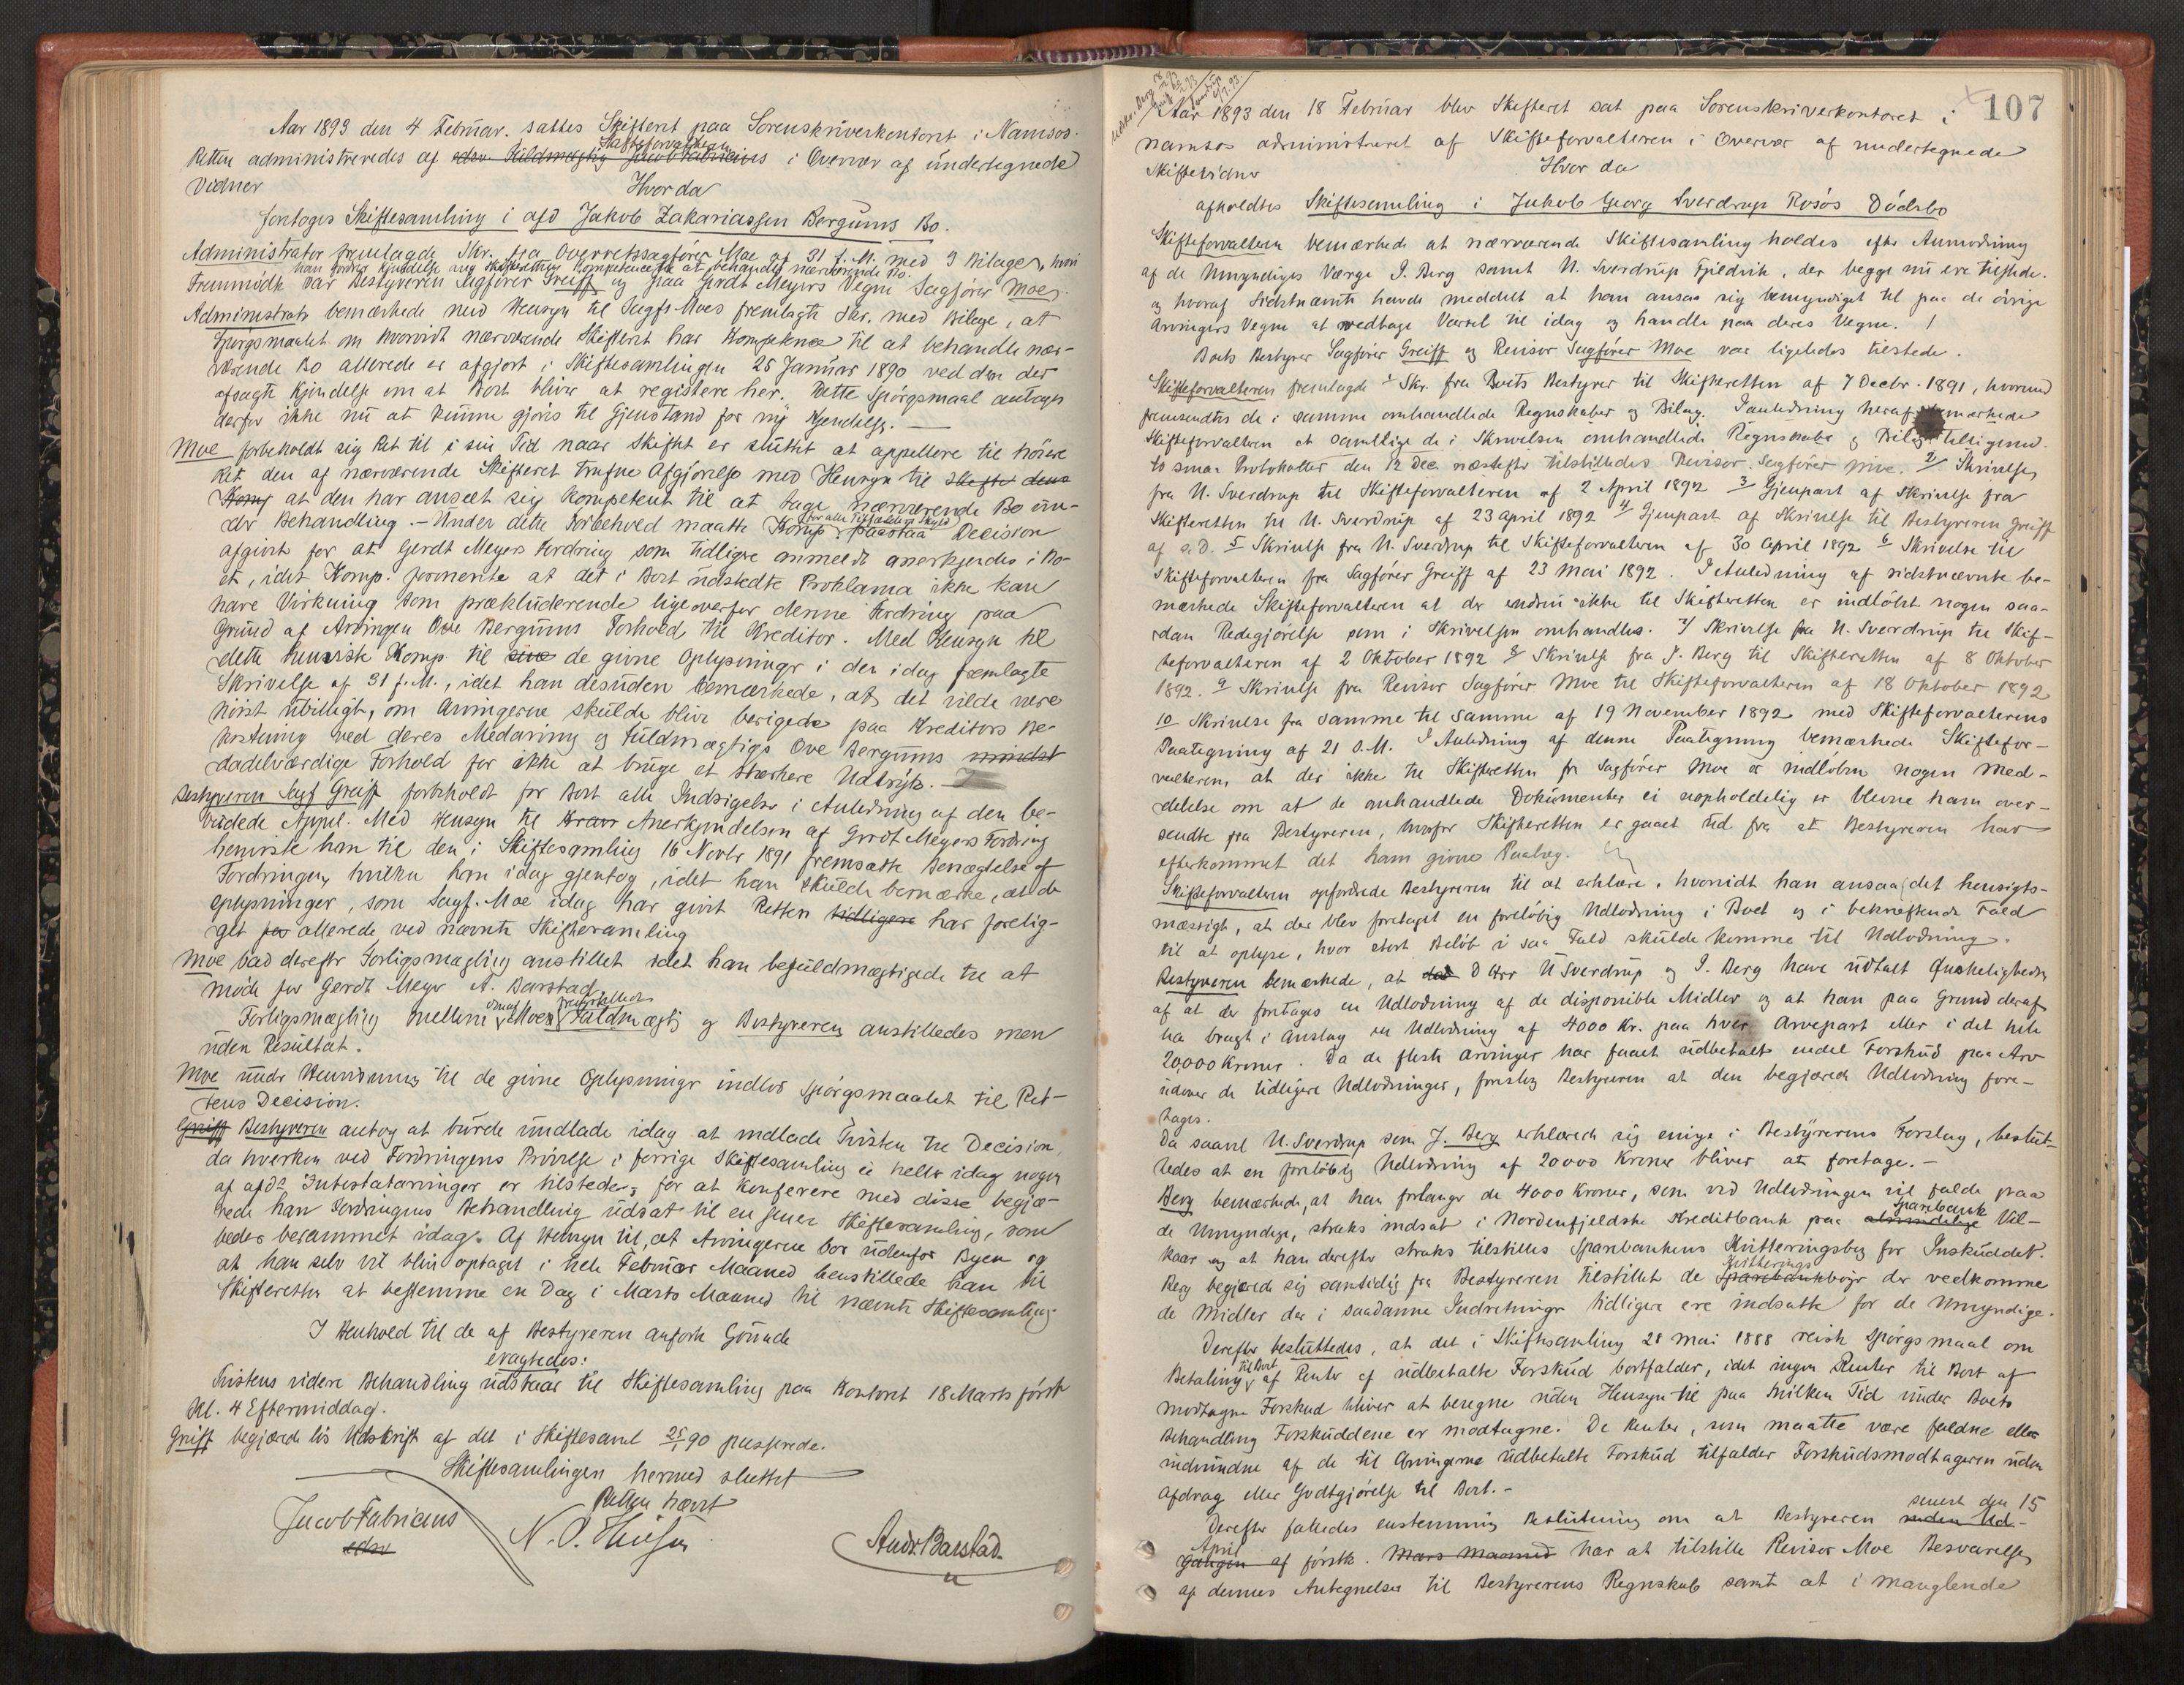 Aar 1893 den 4 Februar. sattes Skifteret paa Sorenskriverkontoret i Namsos.
Skifteforvalteren
Retten administreredes af edsv. Fuldmægtig Jacob Fabricius i Overvær af undertegnede
Vidner Hvor da
foretoges Skiftesamling i afd Jakob Zakariassen Bergums Bo.
Administrator fremlagde Skr. fra Overretssagfører Moe af 31 f. M. med 3 Bilager, hvori
han fordrer Kjendelse ang Skifterettens Kompetence til at behandle nærværende Bo.
Fremmødt var Bestyreren Sagfører Greiff og paa Gerdt Meyers Vegne Sagfører Moe.
Administrator bemærkede med Hensyn til Sagf. Moes fremlagte Skr. med Bilage, at
Spørgsmaalet om hvorvidt nærværende Skifteret har Kompetence til at behandle nær-
værende Bo allerede er afgjort i Skiftesamlingen 25 Januar 1890 ved den der
afsagte Kjendelse om at Boet bliver at registere her. Dette Spørgsmaal antages
derfor ikke nu at kunne gjøres til Gjenstand for ny Kjendelse. —
Moe forbeholdt sig Ret til i sin Tid naar Skiftet er sluttet at appellere til høiere
Ret den af nærværende Skifteret trufne Afgjørelse med Hensyn til Skifte dens
Komp at den har anseet sig kompetent til at tage nærværende Bo un-
der Behandling. — Under dette Forbehold maatte Komp. for alle Tilfældes Skyld paastaa Decision
afgivet for at Gerdt Meyers Fordring som tidligere anmeldt anerkjendes i Bo-
et, idet Komp. formente at det i Boet udstedte Proklama ikke kan
have Virkning som prækluderende ligeoverfor denne Fordring paa
Grund af Arvingen Ove Bergums Forhold til Kreditor. Med Hensyn til
dette henviste Komp. til sine de givne Oplysninger i den idag fremlagte
Skrivelse af 31 f. M., idet han desuden bemærkede, at det vilde være
høist ubilligt, om Arvingerne skulde blive berigede paa Kreditors Be-
kostning ved deres Medarving og Fuldmægtigs Ove Bergums mindst
dadelværdige Forhold for ikke at bruge et stærkere Udtryk. —
Bestyreren Sagf Greiff forbeholdt for Boet alle Indsigelser i Anledning af den be-
budede Appel. Med Hensyn til Krav Anerkjendelsen af Gerdt Meyers Fordring
henviste han til den i Skiftesamling 16 Novbr 1891 fremsatte Benægtelse af
Fordringen, hvilken han idag gjentog, idet han skulde bemærke, at de
oplysninger, som Sagf. Moe idag har givet Retten tidligere har forelig-
get for allerede ved nævnte Skiftesamling
Moe bad derefter Forligsmægling anstillet idet han befuldmægtigede til at
møde for Gerdt Meyer A. Barstad
Forligsmægling mellem Moes Fuldmægtig og Bestyreren anstilledes men
uden Resultat.
Moe under Henvisning til de givne Oplysninger indlod Spørgsmaalet til Ret-
tens Decision.
Greiff Bestyreren antog at burde undlade idag at indlade Tvisten til Decision,
da hverken ved Fordringens Prøvelse i forrige Skiftesamling ei heller idag nogen
af afds Intestatarvinger er tilstede, for at konferere med disse begjæ-
rede han Fordringens Behandling udsat til en senere Skiftesamling, som
bedes berammet idag. Af Hensyn til, at Arvingerne bor udenfor Byen og
at han selv vil blive optaget i hele Februar Maaned henstillede han til
Skifteretten at bestemme en Dag i Marts Maaned til nævnte Skiftesamling
I Henhold til de af Bestyreren anførte Grunde
eragtedes:
Tvistens videre Behandling udstaar til Skiftesamling paa Kontoret 18 Marts først
Kl. 4 Eftermiddag.
Greiff begjærede lös Udskrift af det i Skiftesaml 25/1 90 passerede.
Skiftesamlingen hermed sluttet
Retten hævet
Jacob Fabricius
edsv
Andr. Barstad.
107
Aar 1893 den 18 Februar blev Skifteret sat paa Sorenskriverkontoret i
Namsos administreret af Skifteforvalteren i Overvær af undertegnede
Skiftevidner Hvor da
afholdtes Skiftesamling i Jakob Georg Sverdrup Rosøs Dødsbo
Skifteforvalteren bemærkede at nærværende Skiftesamling holdes efter Anmodning
af de Umyndiges Værge J. Berg samt U. Sverdrup Fjeldvik, der begge nu ere tilstede.
og hvoraf Sidstnævnte havde meddelt at han ansaa sig bemyndiget til paa de øvrige
Arvingers Vegne at vedtage Varsel til idag og handle paa deres Vegne. /
Boets Bestyrer Sagfører Greiff og Revisor Sagfører Moe var ligeledes tilstede.
Skifteforvalteren fremlagde 1 Skr. fra Boets Bestyrer til Skifteretten af 7 Decbr. 1891, hvorved
fremsendtes de i samme omhandlede Regnskaber og Bilag. I anledning heraf bemærkede
Skifteforvalteren at samtlige de i Skrivelsen omhandlede Regnskaber og Bilag tilligemed
to smaa Protokoller den 12 Dec. næstefter tilstilledes Revisor Sagfører Moe. 2/ Skrivelse
fra U. Sverdrup til Skifteforvalteren af 2 April 1892 3 Gjenpart af Skrivelse fra
Skifteretten til U. Sverdrup af 23 April 1892 4/ Gjenpart af Skrivelse til Bestyreren Greiff
af s. D. 5 Skrivelse fra U. Sverdrup til Skifteforvalteren af 30 April 1892 6 Skrivelse til
Skifteforvalteren fra Sagfører Greiff af 23 Mai 1892. I Anledning af sidstnævnte be-
mærkede Skifteforvalteren at der endnu ikke til Skifteretten er indløbet nogen saa-
dan Redegjørelse som i Skrivelsen omhandles. 7/ Skrivelse fra U. Sverdrup til Skif-
teforvalteren af 2 Oktober 1892 8/ Skrivelse fra J. Berg til Skifteretten af 8 Oktober
1892. 9 Skrivelse fra Revisor Sagfører Moe til Skifteforvalteren af 18 Oktober 1892
10 Skrivelse fra samme til samme af 19 November 1892 med Skifteforvalterens
Paategning af 21 s. M. I Anledning af denne Paategning bemærkede Skiftefor-
valteren, at der ikke til Skifteretten fra Sagfører Moe er indløben nogen Med-
delelse om at de omhandlede Dokumenter ei uopholdelig er blevne ham over-
sendte fra Bestyreren, hvorfor Skifteretten er gaaet ud fra at Bestyreren har
efterkommet det ham givne Paalæg.
Skifteforvalteren opfordrede Bestyreren til at erklære, hvorvidt han ansaa det hensigts-
mæssigt, at der blev foretaget en foreløbig Udlodning i Boet og i bekræftende Fald
til at oplyse, hvor stort Beløb i saa Fald skulde komme til Udlodning.
Bestyreren bemærkede, at det D Hrr U Sverdrup og J. Berg have udtalt Ønskeligheden
af at der foretages en Udlodning af de disponible Midler og at han paa Grund deraf
har bragt i Anslag en Udlodning af 4000 Kr. paa hver Arvepart eller i det hele
20,000 Kroner. Da de fleste Arvinger har faaet udbetalt endel Forskud paa Arv
udover de tidligere Udlodninger, foreslog Bestyreren at den begjærede Udlodning fore-
tages.
Da saavel U. Sverdrup som J. Berg erklærede sig enige i Bestyrerens Forslag, beslut-
tedes at en foreløbig Udlodning af 20000 Kroner bliver at foretage. —
Berg bemærkede, at han forlanger de 4000 Kroner, som ved Udlodningen vil falde paa
Sparebank
de Umyndige, straks indsat i Nordenfjeldske Kreditbank paa almindelige Vil-
kaar og at han derefter straks tilstilles Sparebankens Kvitteringsbog for Inskuddet.
Kvitterings
Berg begjærede sig samtidig fra Bestyreren tilstillet de Sparebankbøger der vedkomme
de Midler der i saadanne Indretninger tidligere ere indsatte for de Umyndige.
Derefter besluttedes, at det i Skiftesamling 28 Mai 1888 reiste Spørgsmaal om
Betaling til Boet af Renter af udbetalte Forskud bortfalder, idet ingen Renter til Boet af
modtagne Forskud bliver at beregne uden Hensyn til paa hvilken Tid under Boets
Behandling Forskuddene er modtagne. De Renter, som maatte være faldne eller
indvundne af de til Arvingerne udbetalte Forskud tilfalder Forskudsmodtageren uden
Afdrag eller Godtgjørelse til Boet. —
senest den 15
Derefter fattedes enstemmig Beslutning om at Bestyreren inden Ud-
April
gangen af førstk. Mars Maaned har at tilstille Revisor Moe Besvarelse
af dennes Antegnelser til Bestyrerens Regnskab samt at i manglende